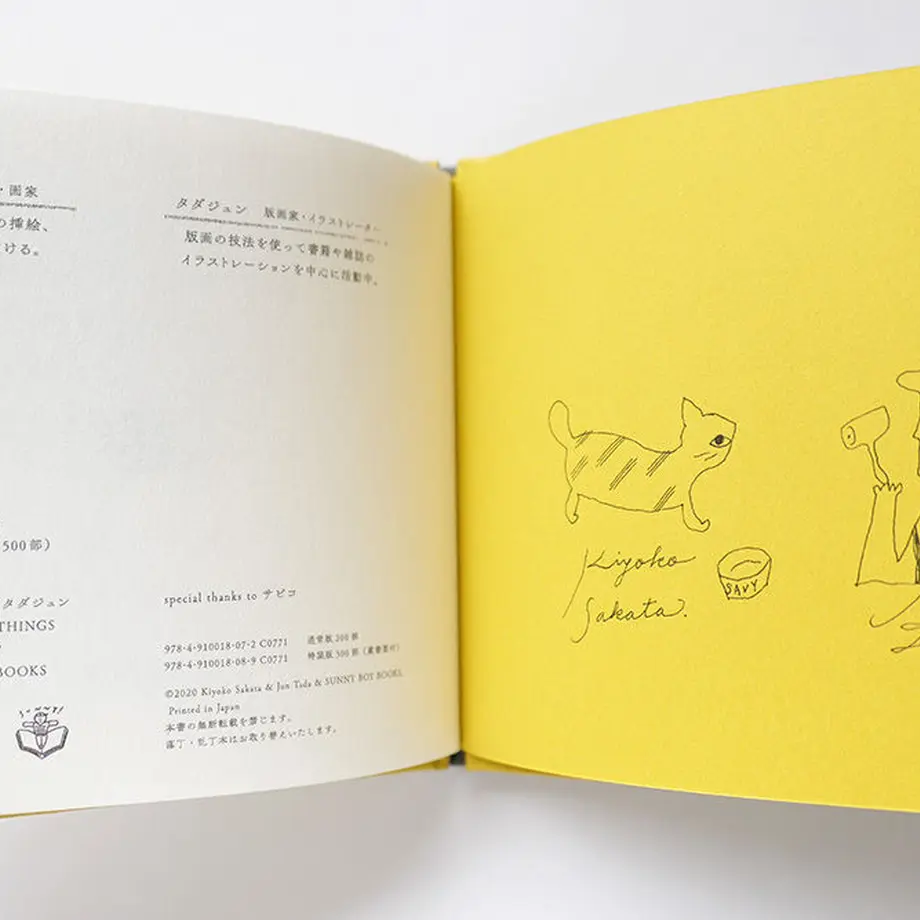 ・画家
の挿絵、
ける。
タダジュン　版画家・イラストレーター
版画の技法を使って書籍や雑誌の
イラストレーションを中心に活動中。
500部）
タダジュン
THINGS
BOOKS
SUNNY!
special thanks to サビコ
978-4-910018-07-2 C0771　通常版 200部
978-4-910018-08-9 C0771　特装版 300部（蔵書票付）
©2020 Kiyoko Sakata & Jun Tada & SUNNY BOY BOOKS
Printed in Japan
本書の無断転載を禁じます。
落丁・乱丁本はお取り替えいたします。
Kiyoko
Sakata.
SAVY